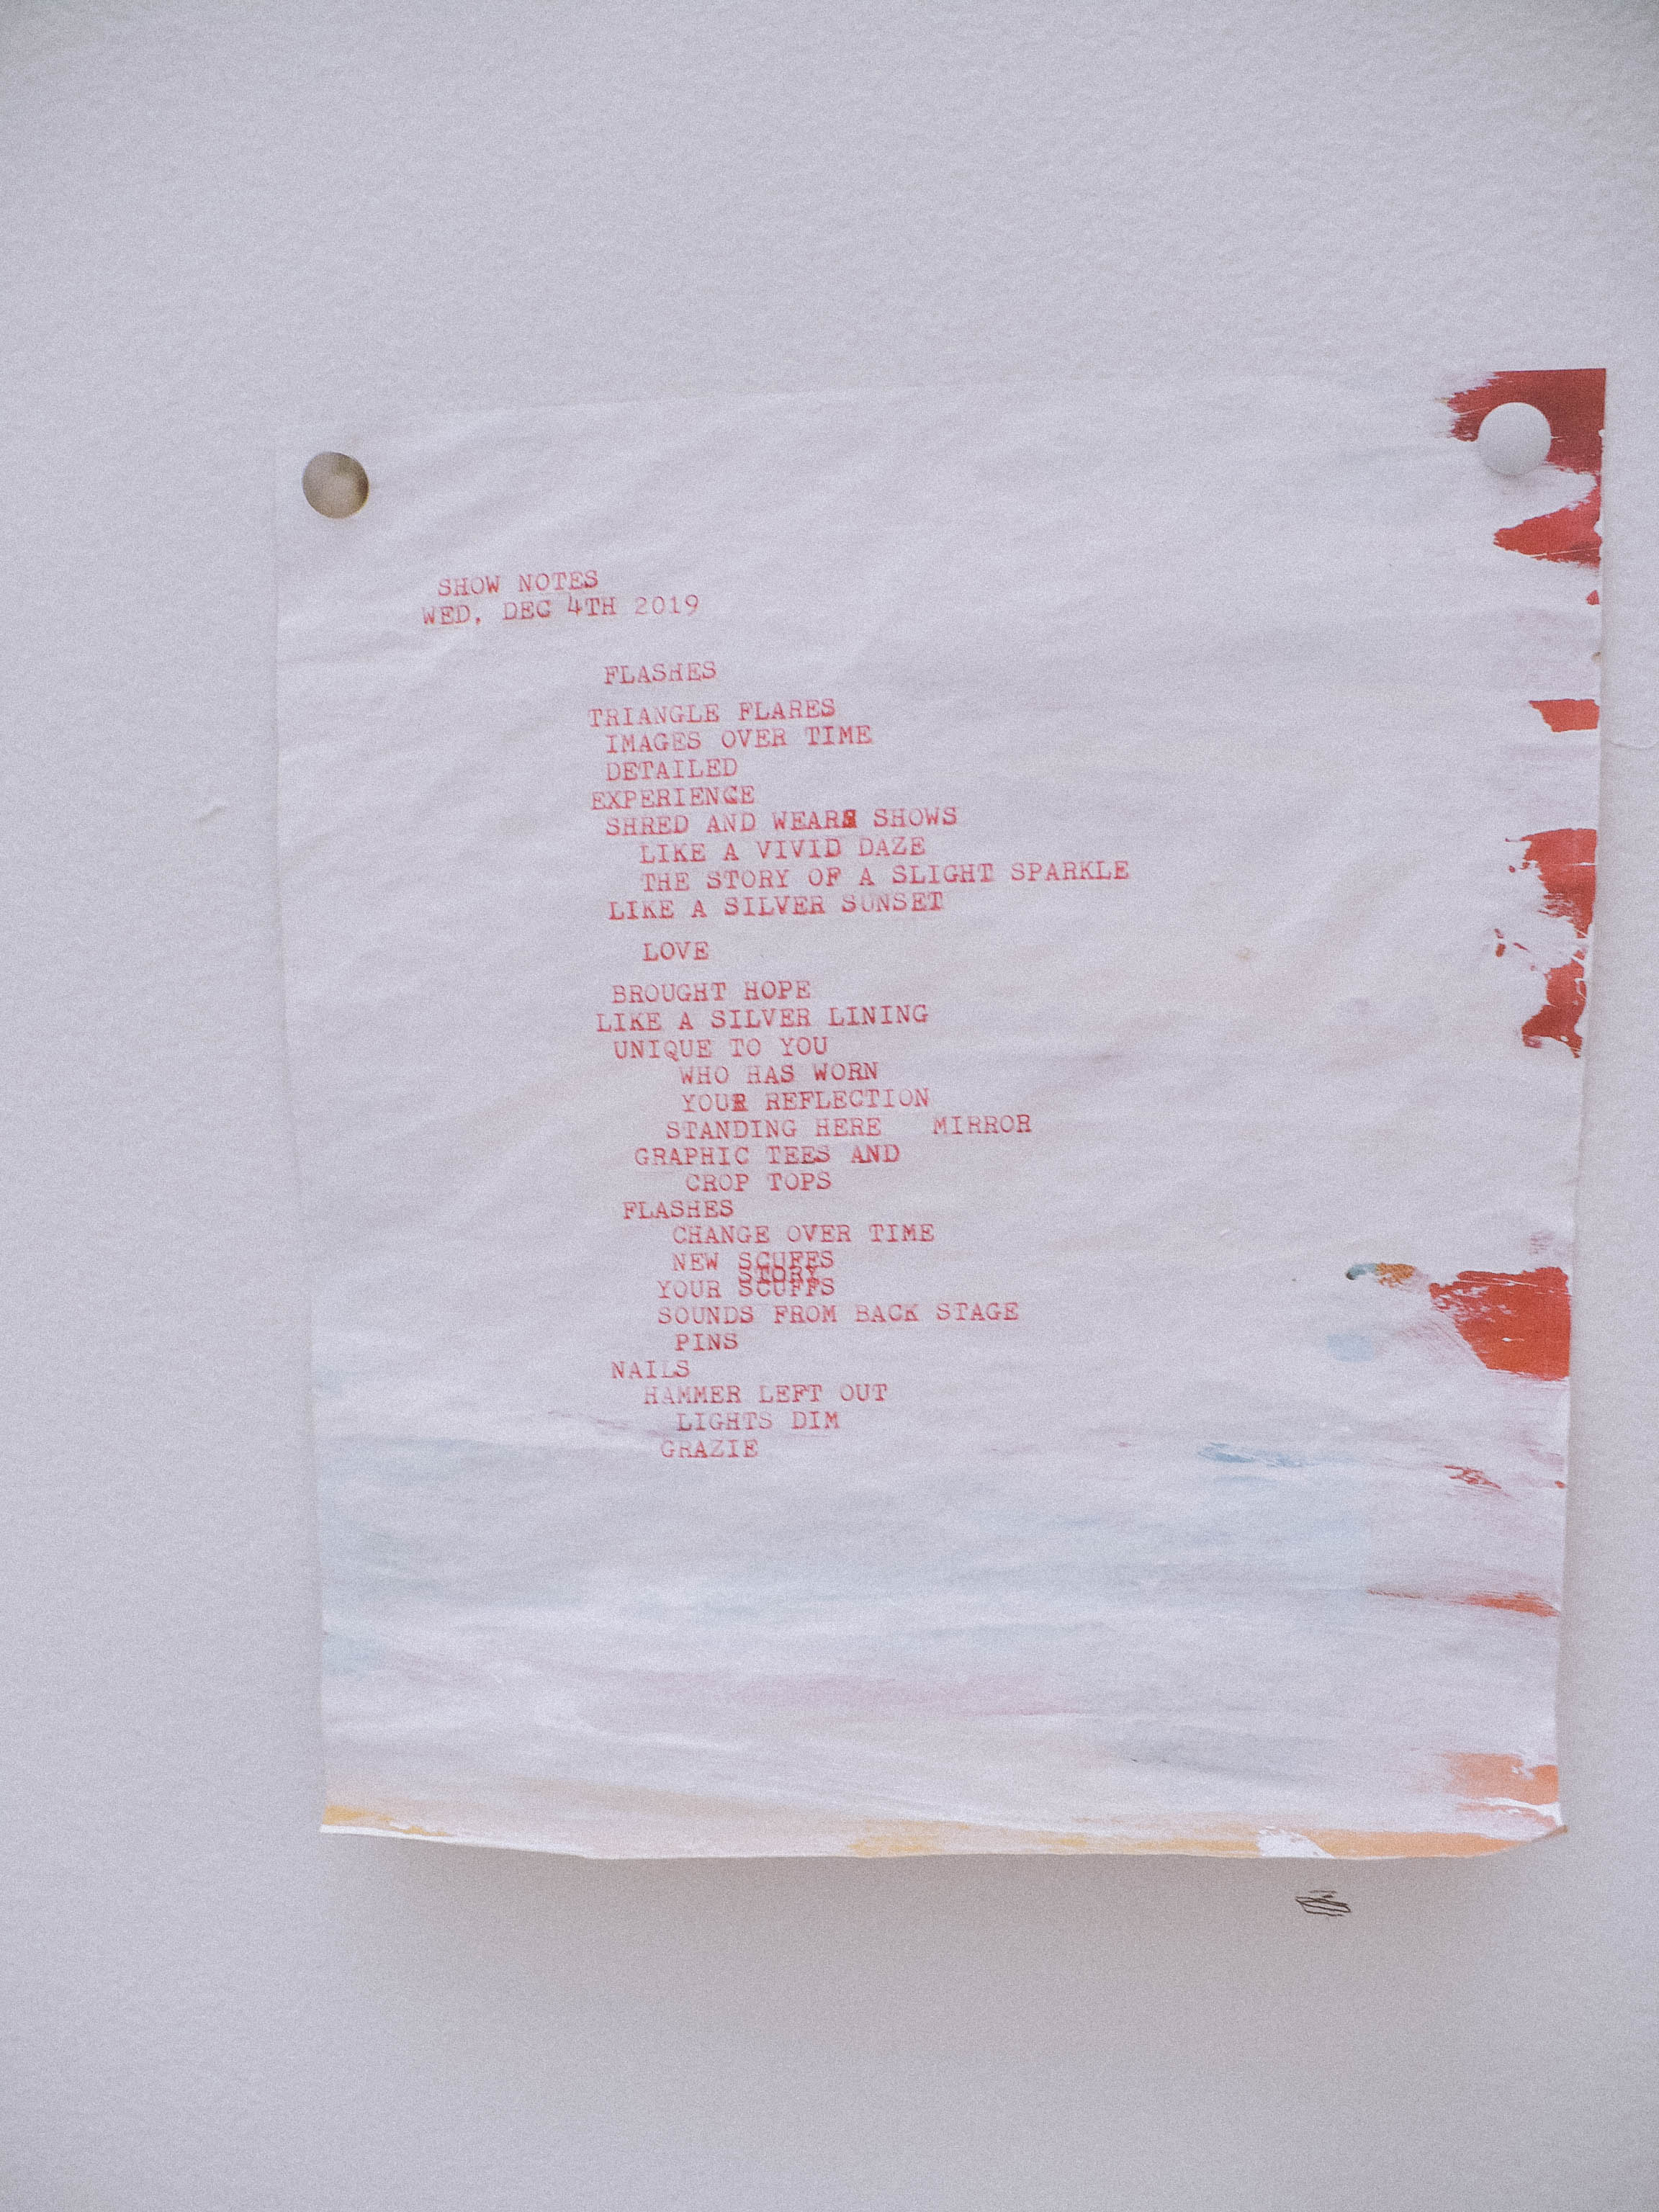 SHOW NOTES
WED, DEC 4TH 2019
FLASHES
TRIANGLE FLARES
IMAGES OVER TIME
DETAILED
EXPERIENCE
SHRED AND WEARS SHOWS
LIKE A VIVID DAZE
THE STORY OF A SLIGHT SPARKLE
LIKE A SILVER SUNSET
LOVE
BROUGHT HOPE
LIKE A SILVER LINING
UNIQUE TO YOU
WHO HAS WORN
YOUR REFLECTION
STANDING HERE MIRROR
GRAPHIC TEES AND
CROP TOPS
FLASHES
CHANGE OVER TIME
NEW SCUFFS
STORY
YOUR SCUFFS
SOUNDS FROM BACK STAGE
PINS
NAILS
HAMMER LEFT OUT
LIGHTS DIM
GRAZIE